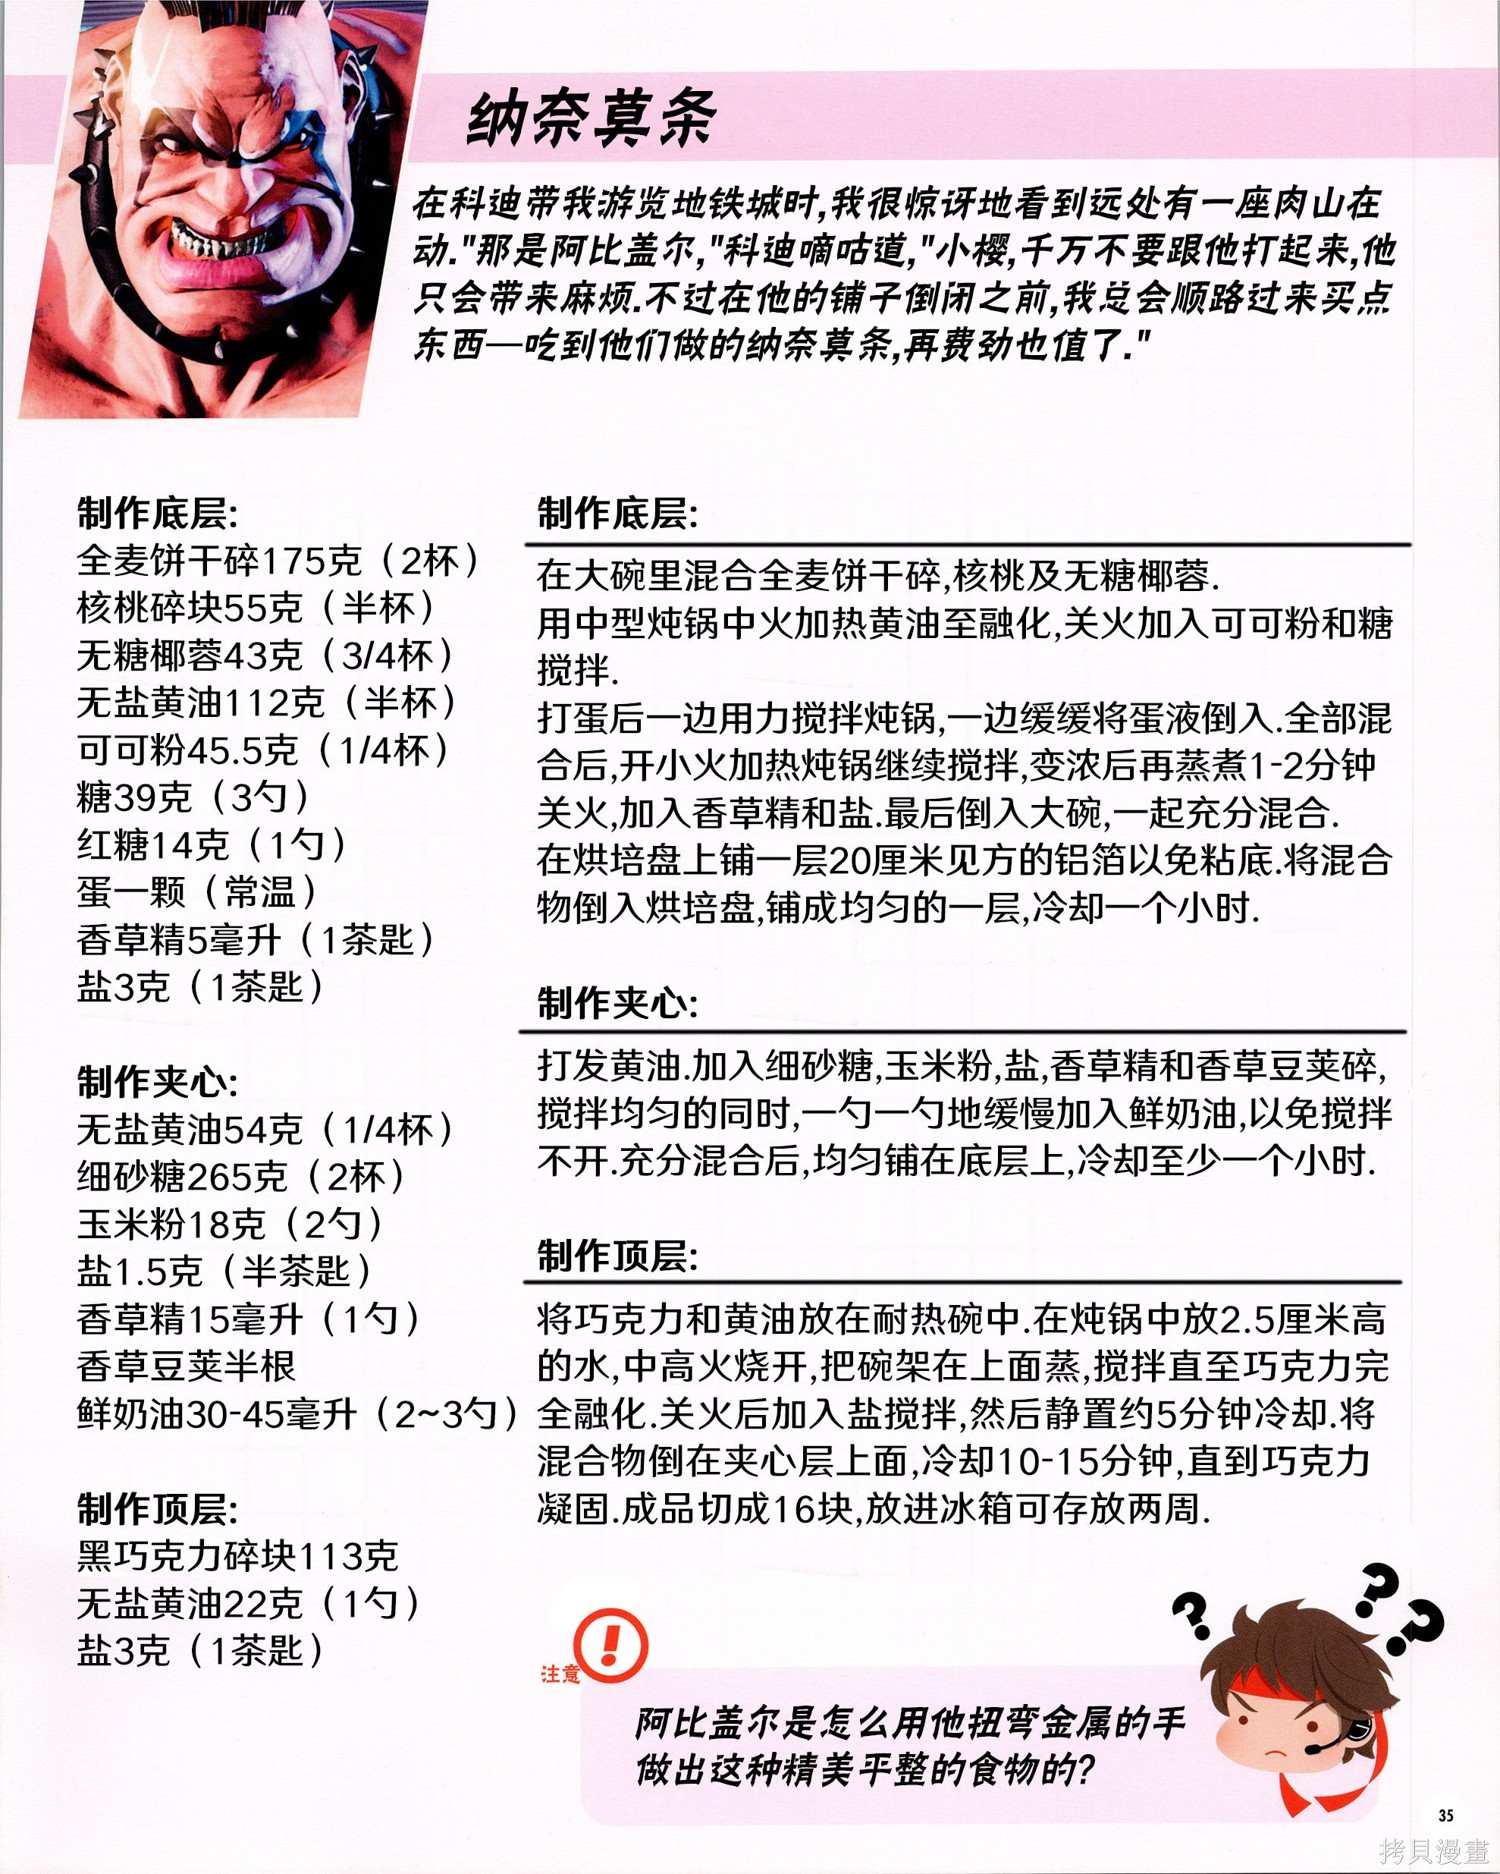 纳奈莫条
在科迪带我游览地铁城时,我很惊讶地看到远处有一座肉山在
动."那是阿比盖尔,"科迪嘀咕道,"小樱,千万不要跟他打起来,他
只会带来麻烦.不过在他的铺子倒闭之前,我总会顺路过来买点
东西—吃到他们做的纳奈莫条,再费劲也值了."
制作底层:
全麦饼干碎175克（2杯）
核桃碎块55克（半杯）
无糖椰蓉43克（3/4杯）
无盐黄油112克（半杯）
可可粉45.5克（1/4杯）
糖39克（3勺）
红糖14克（1勺）
蛋一颗（常温）
香草精5毫升（1茶匙）
盐3克（1茶匙）
制作夹心:
无盐黄油54克（1/4杯）
细砂糖265克（2杯）
玉米粉18克（2勺）
盐1.5克（半茶匙）
香草精15毫升（1勺）
香草豆荚半根
鲜奶油30-45毫升（2~3勺）
制作顶层:
黑巧克力碎块113克
无盐黄油22克（1勺）
盐3克（1茶匙）
制作底层:
在大碗里混合全麦饼干碎,核桃及无糖椰蓉.
用中型炖锅中火加热黄油至融化,关火加入可可粉和糖
搅拌.
打蛋后一边用力搅拌炖锅,一边缓缓将蛋液倒入.全部混
合后,开小火加热炖锅继续搅拌,变浓后再蒸煮1-2分钟
关火,加入香草精和盐.最后倒入大碗,一起充分混合.
在烘培盘上铺一层20厘米见方的铝箔以免粘底.将混合
物倒入烘培盘,铺成均匀的一层,冷却一个小时.
制作夹心:
打发黄油.加入细砂糖,玉米粉,盐,香草精和香草豆荚碎,
搅拌均匀的同时,一勺一勺地缓慢加入鲜奶油,以免搅拌
不开.充分混合后,均匀铺在底层上,冷却至少一个小时.
制作顶层:
将巧克力和黄油放在耐热碗中.在炖锅中放2.5厘米高
的水,中高火烧开,把碗架在上面蒸,搅拌直至巧克力完
全融化.关火后加入盐搅拌,然后静置约5分钟冷却.将
混合物倒在夹心层上面,冷却10-15分钟,直到巧克力
凝固.成品切成16块,放进冰箱可存放两周.
注意
阿比盖尔是怎么用他扭弯金属的手
做出这种精美平整的食物的?
35
拷貝漫畫